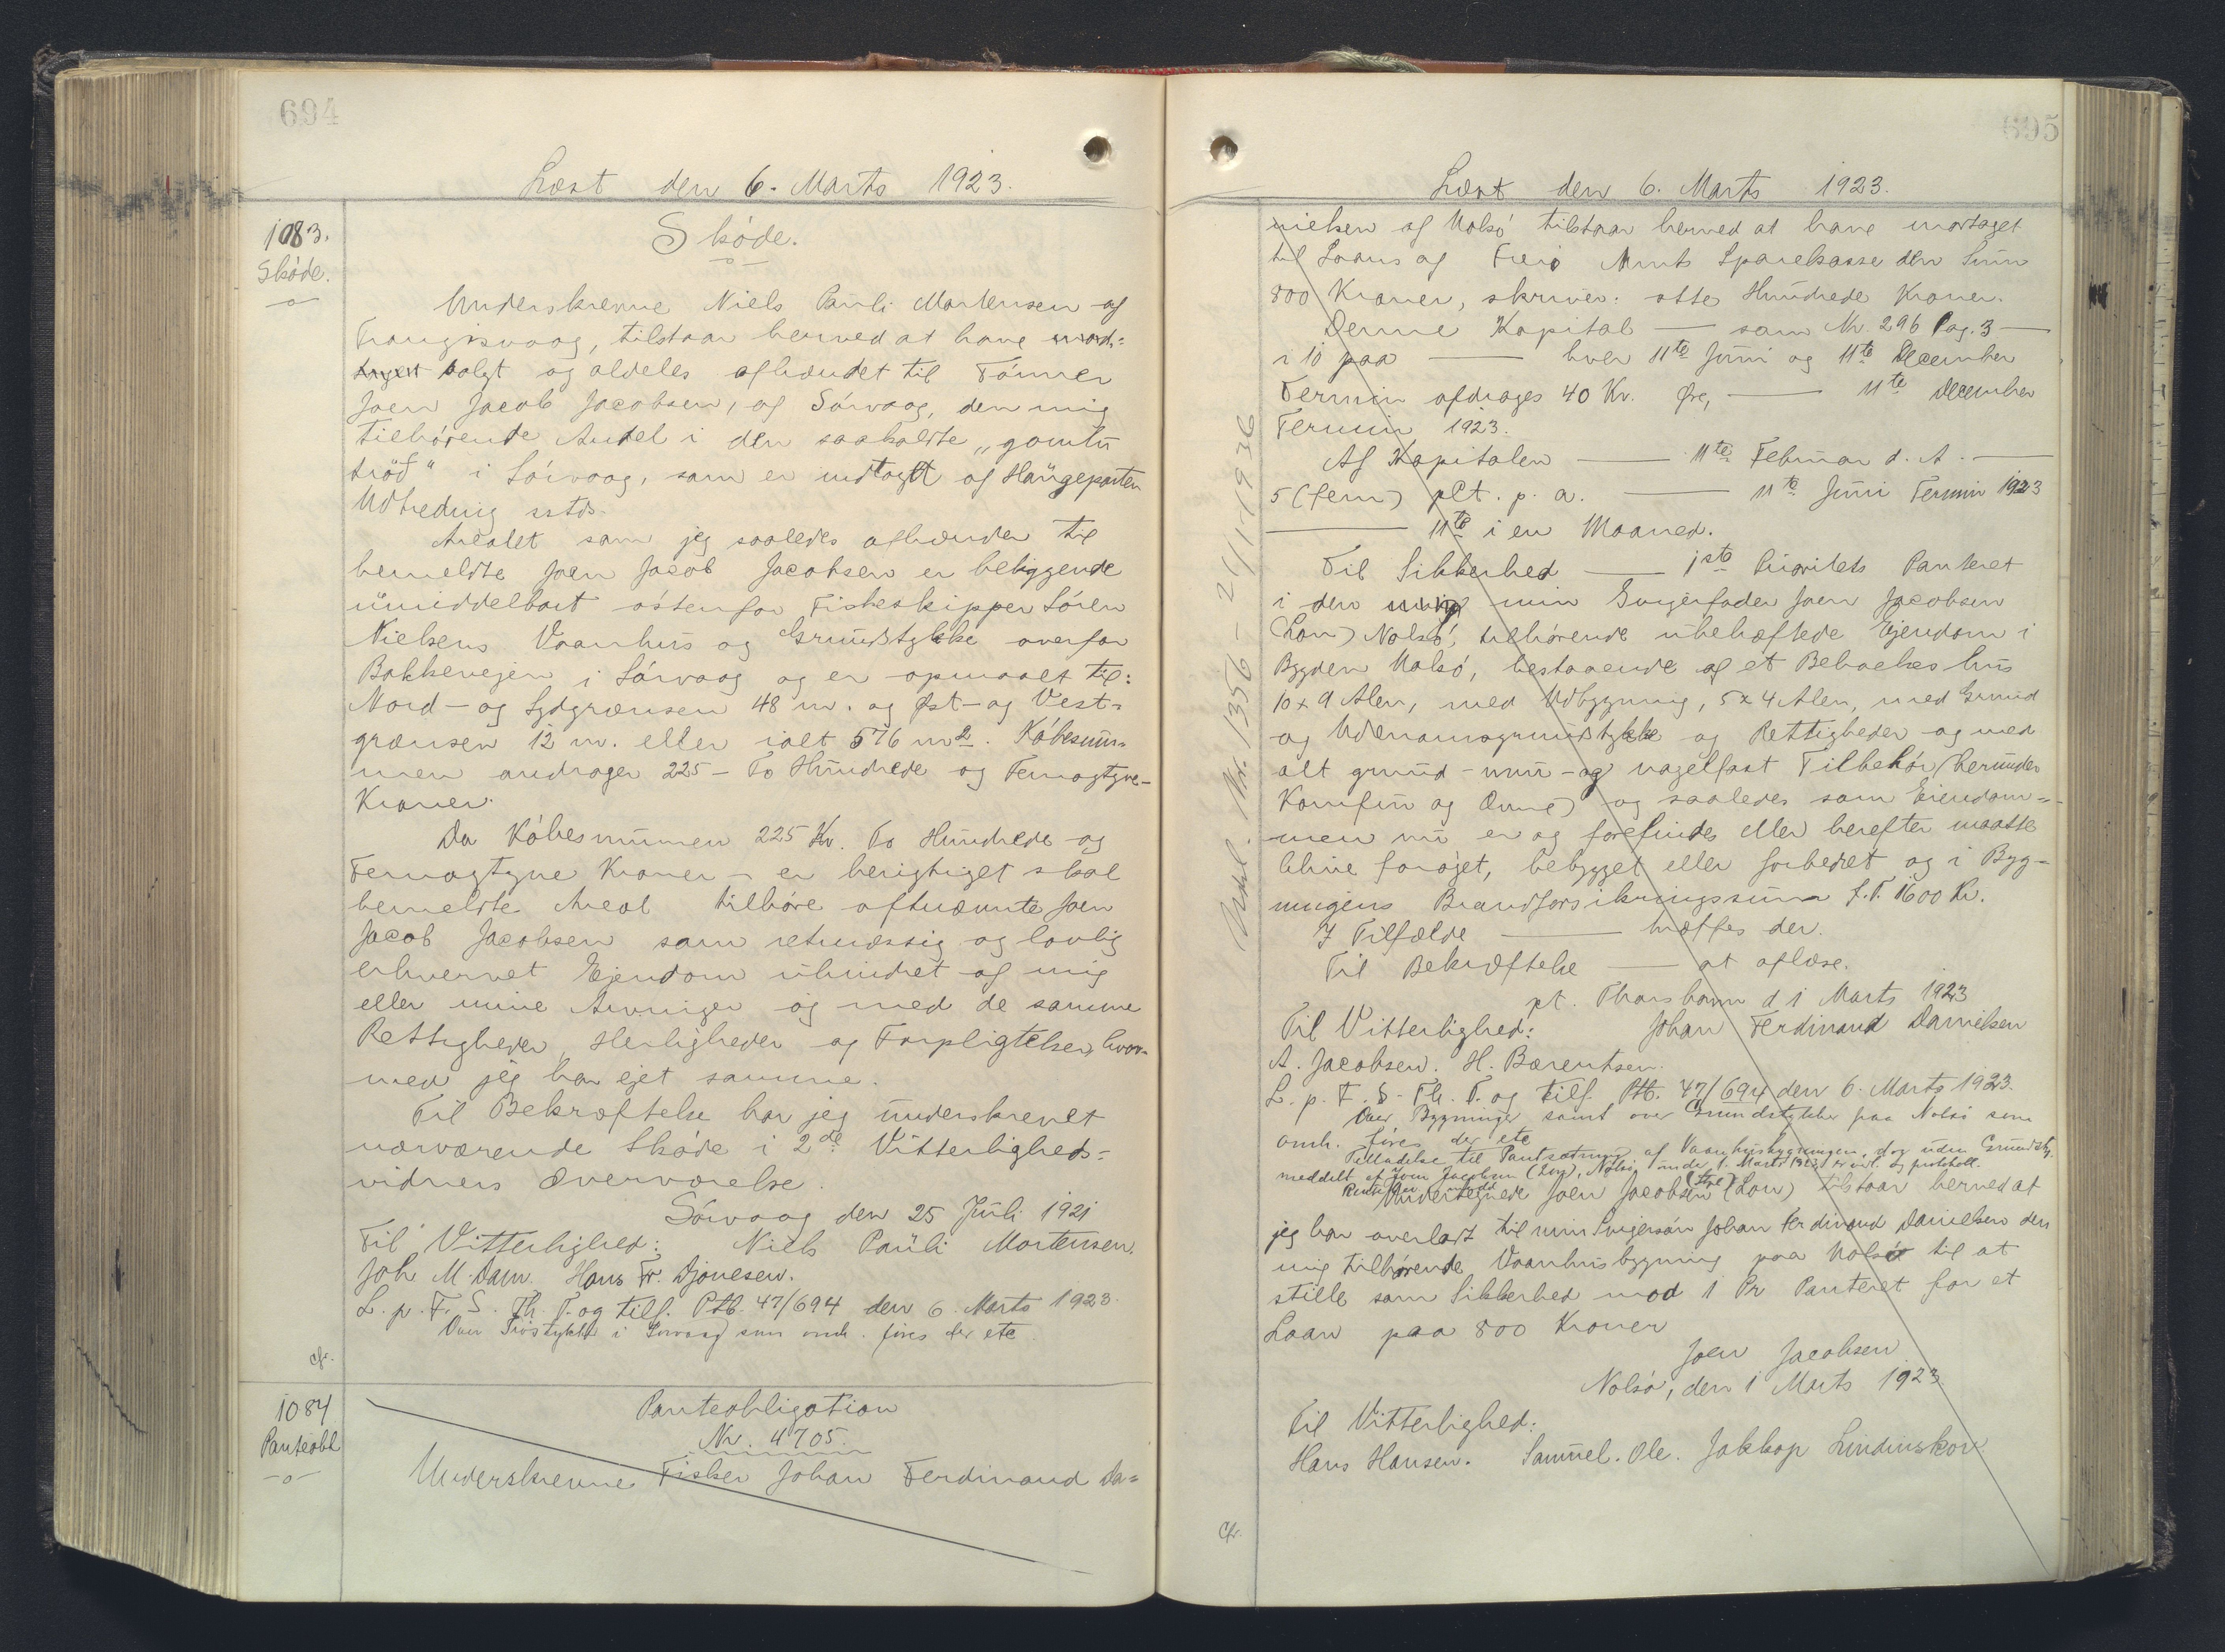 694
Læst den 6. Marts 1923.
1083.
Skóde.
Skóde.
Underskrevne Niels Pauli Mortensen af
Trangisvaag, tilstaar herved at have mod=
taget solgt og aldeles afhændet til Tómrer
Joen Jacob Jacobsen, af Sórvaag, den mig
tilhórende Andel i den saakaldte „gomlu
tröð" i Sórvaag, som er indtaget af Haugeparten
Udtrednig sstds.
Arealet som jeg saaledes afhænder til
bemeldte Joen Jacob Jacobsen er beliggende
umiddelbart óstenfor Fiskeskipper Sóren
Nielsens Vaanhus og Grundstykke overfor
Bakkevejen i Sórvaag og er opmaalt til:
Nord- og Sydgrænsen 48 m. og Øst- og Vest=
grænsen 12 m. eller ialt 576 m2. Kóbesum=
men andrager 225 - To Hundrede og Femogtyve-
Kroner.
Da Kóbesummen 225 Kr. To Hundrede og
Femogtyve Kroner - er berigtiget skal
bemeldte Areal tilhóre oftnævnte Joen
Jacob Jacobsen som retmæssig og lovlig
erhvervet Ejendom uhindret af mig
eller mine Arvinger og med de samme
Rettigheder, Herligheder og Forpligtelser, hvor=
med jeg har ejet samme.
Til Bekræftelse har jeg underskrevet
nærværende Skóde i 2de Vitterligheds=
vidners Overværelse.
Sórvaag den 25 Juli 1921
Til Vitterlighed: Niels Pauli Mortensen.
Joh M. Dam. Hans Fr. Djonesen.
L. p. F. S. Th. T. og tilf. Ptb. 47/694 den 6. Marts 1923.
Over Tróstykke i Sórvaag som omh. fóres der etc
cfr.
1084
Panteobl
Panteobligation
Nr. 4705.
Underskrevne Fisker Johan Ferdinand Da=
695
Læst den 6. Marts 1923.
nielsen af Nolsó tilstaar herved at have modtaget
til Laans af Færó Amts Sparekasse den Sum
800 Kroner, skriver: otte Hundrede Kroner.
Denne Kapital — som Nr. 296 Pag. 3 —
i 10 paa — hver 11te Juni og 11te December
Termin afdrages 40 Kr. Øre, — 11te December
Termin 1923.
Af Kapitalen — 11te Februar d. A. —
5 (fem) pCt. p. a. — 11te Juni Termin 1923
— 11te i en Maaned.
Til Sikkerhed — 1ste Prioritets Panteret
i den mig min Svigerfader Joen Jacobsen
(Lon) Nolsó, tilhórende ubehæftede Ejendom i
Bygden Nolsó, bestaaende af et Beboelses hus
10 x 9 Alen, med Udbygning, 5 x 4 Alen, med Grund
og Udenomsgrundstykke og Rettigheder og med
alt grund- mur- og nagelfast Tilbehór (herunder
Komfur og Ovne) og saaledes som Eiendom=
men nu er og forefindes eller herefter maatte
blive foróget, bebygget eller forbedret og i Byg=
ningens Brandforsikringssum f. T. 1600 Kr.
I Tilfælde — træffes der.
Til Bekræftelse — at aflæse.
pt. Thorshavn d 1 Marts 1923
Til Vitterlighed: Johan Ferdinand Danielsen
A. Jacobsen. H. Bærentsen.
L. p. F. S. Th. T. og tilf. Ptb. 47/694 den 6. Marts 1923.
Over Bygninger samt over Grundstykke paa Nolsó som
omh. fóres der etc
Tilladelse til Pantsætning af Vaanhusbygningen, dog uden Grundstk.
meddelt af Joen Jacobsen (Lon), Nolsó under 1. Marts 1923 er protokoll.
Undertegnede Joen Jacobsen (Lon) tilstaar herved at
jeg har overladt til min Svigersón Johan Ferdinand Danielsen den
mig tilhórende Vaanhusbygning paa Nolsó til at
stille som Sikkerhed mod 1 Pr Panteret for et
Laan paa 800 Kroner
Joen Jacobsen
Nolsó, den 1 Marts 1923
Til Vitterlighed:
Hans Hansen. Samuel. Ole. Jakkop Lindinskov
cfr.
Nr. 1356 - 24/11-1936